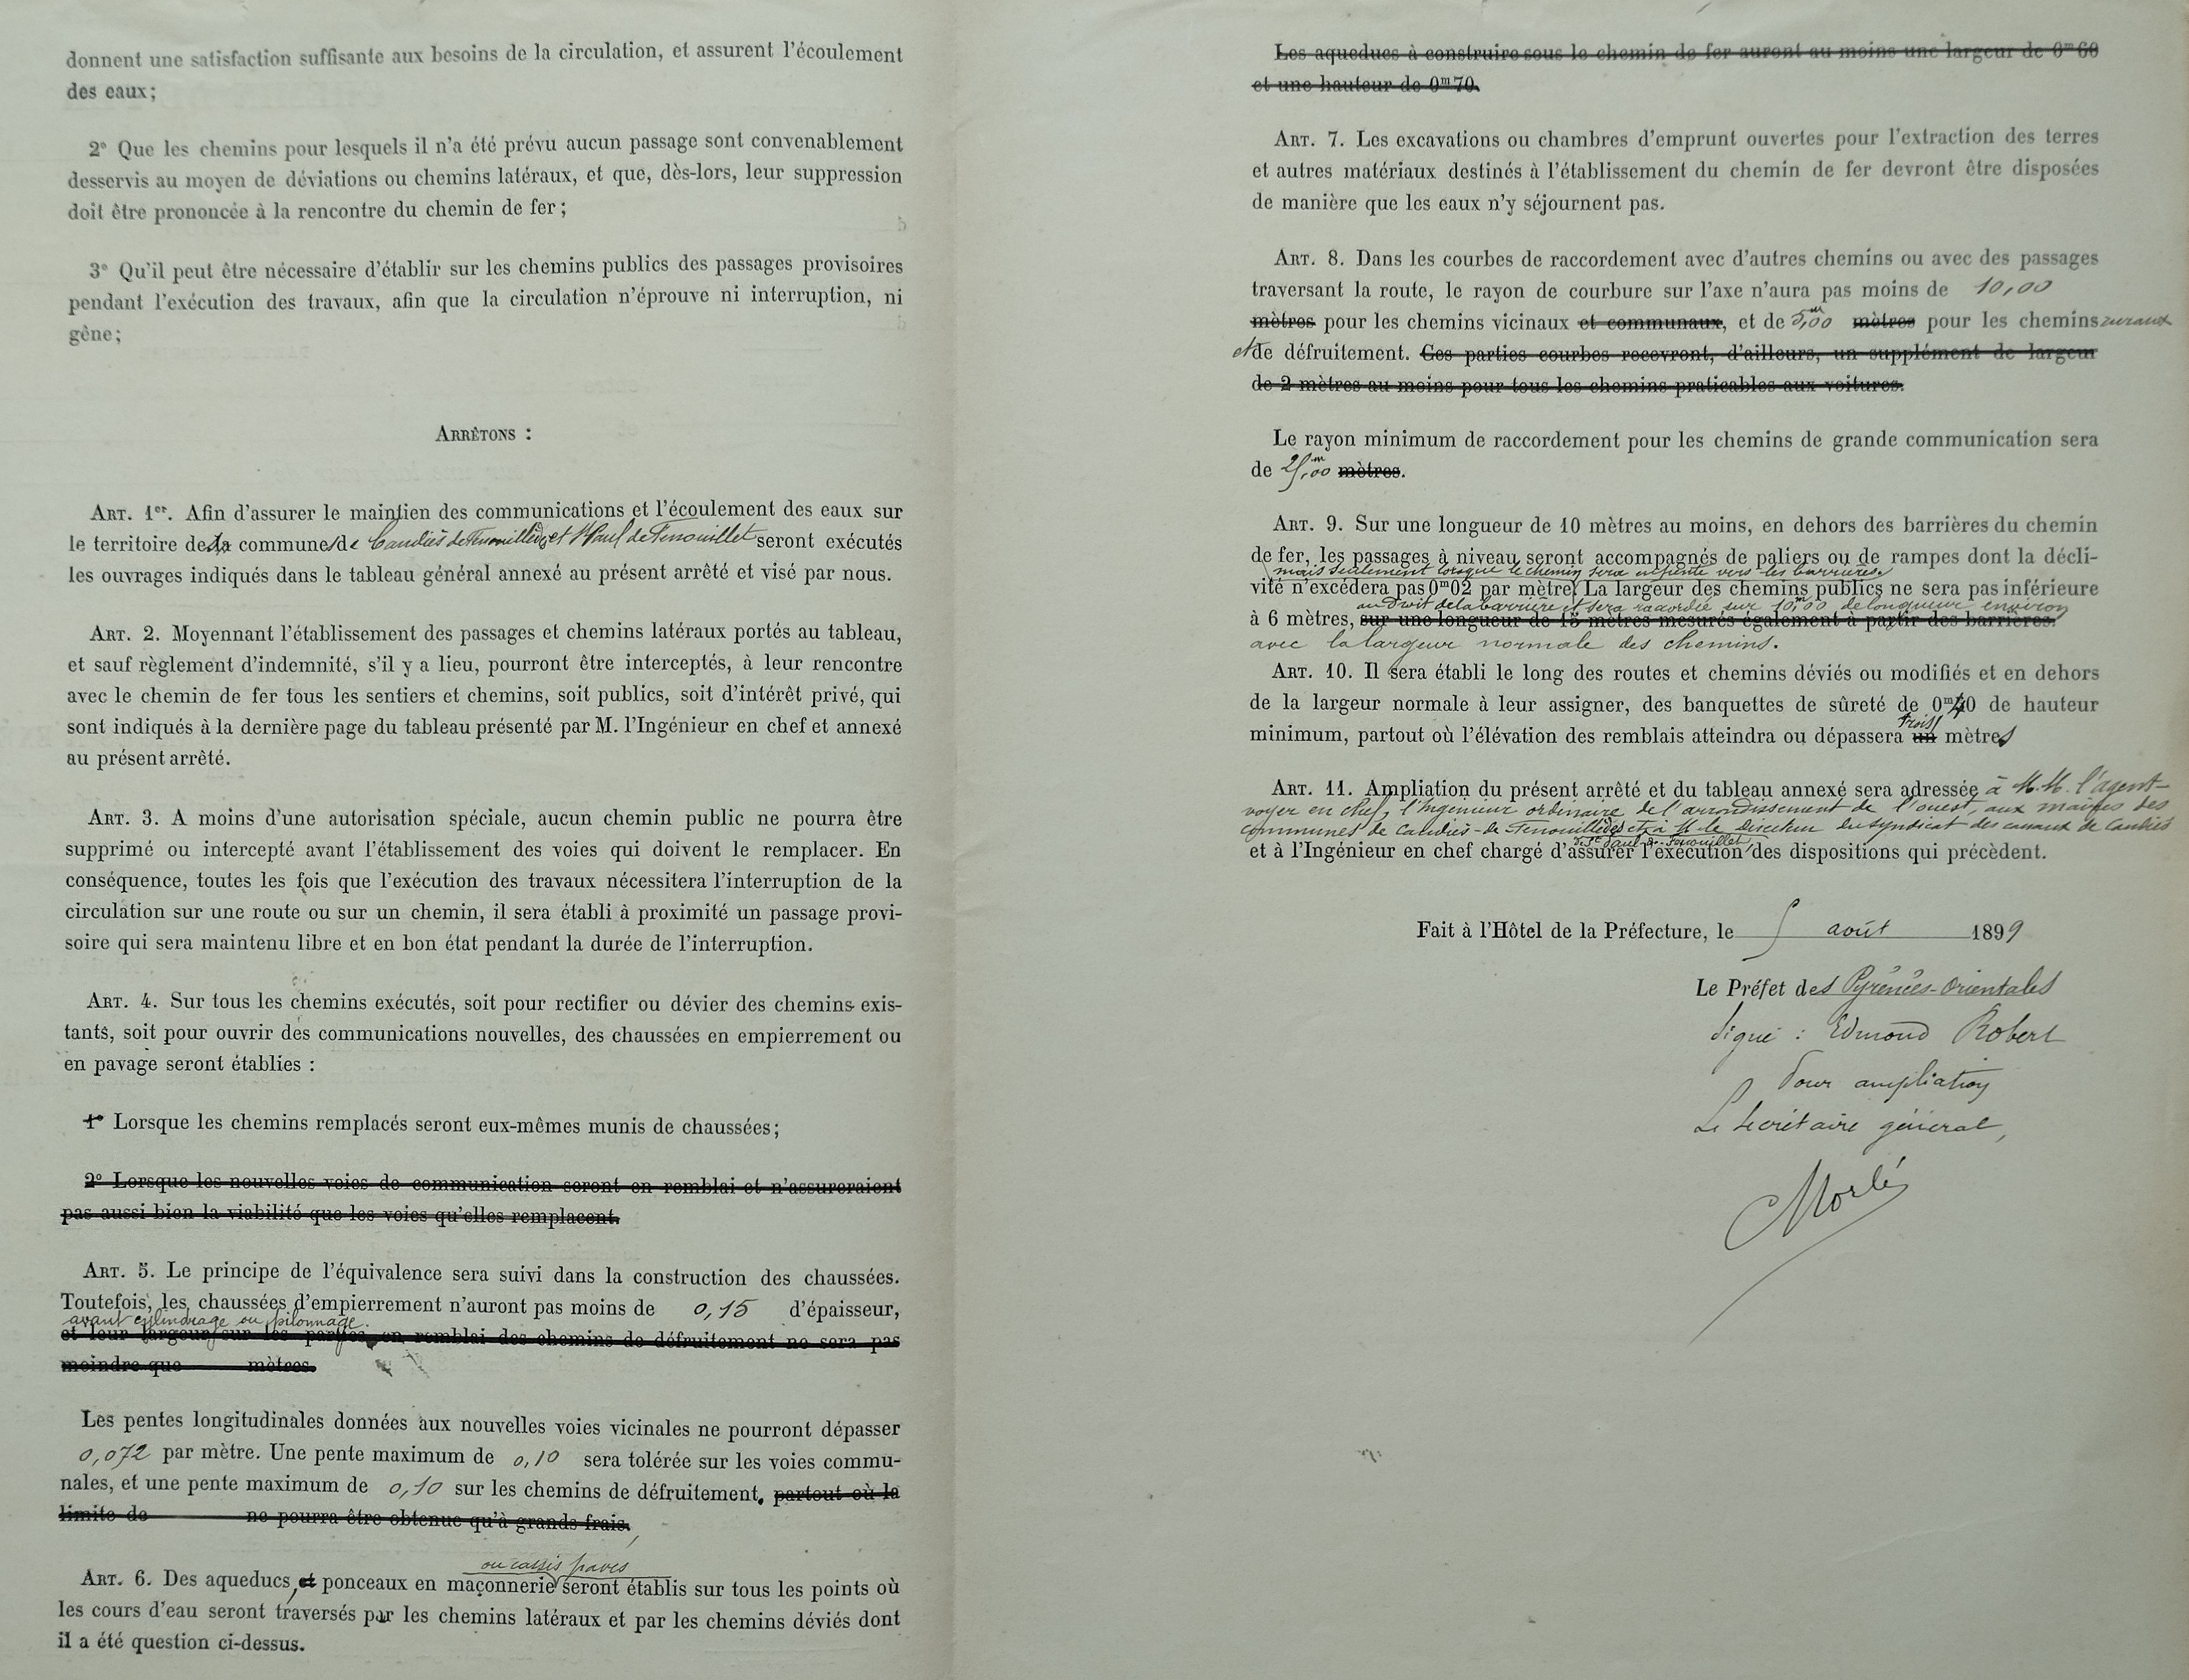 donnent une satisfaction suffisante aux besoins de la circulation, et assurent l'écoulement
des eaux;
2° Que les chemins pour lesquels il n'a été prévu aucun passage sont convenablement
desservis au moyen de déviations ou chemins latéraux, et que, dès-lors, leur suppression
doit être prononcée à la rencontre du chemin de fer;
3° Qu'il peut être nécessaire d'établir sur les chemins publics des passages provisoires
pendant l'exécution des travaux, afin que la circulation n'éprouve ni interruption, ni
gêne;
ARRÊTONS :
ART. 1er. Afin d'assurer le maintien des communications et l'écoulement des eaux sur
le territoire des communes de Caudiès de Fenouillèdes et St Paul de Fenouillet seront exécutés
les ouvrages indiqués dans le tableau général annexé au présent arrêté et visé par nous.
ART. 2. Moyennant l'établissement des passages et chemins latéraux portés au tableau,
et sauf règlement d'indemnité, s'il y a lieu, pourront être interceptés, à leur rencontre
avec le chemin de fer tous les sentiers et chemins, soit publics, soit d'intérêt privé, qui
sont indiqués à la dernière page du tableau présenté par M. l'Ingénieur en chef et annexé
au présent arrêté.
ART. 3. A moins d'une autorisation spéciale, aucun chemin public ne pourra être
supprimé ou intercepté avant l'établissement des voies qui doivent le remplacer. En
conséquence, toutes les fois que l'exécution des travaux nécessitera l'interruption de la
circulation sur une route ou sur un chemin, il sera établi à proximité un passage provi-
soire qui sera maintenu libre et en bon état pendant la durée de l'interruption.
ART. 4. Sur tous les chemins exécutés, soit pour rectifier ou dévier des chemins exis-
tants, soit pour ouvrir des communications nouvelles, des chaussées en empierrement ou
en pavage seront établies :
1° Lorsque les chemins remplacés seront eux-mêmes munis de chaussées;
2° Lorsque les nouvelles voies de communication seront en remblai et n'assureraient
pas aussi bien la viabilité que les voies qu'elles remplacent.
ART. 5. Le principe de l'équivalence sera suivi dans la construction des chaussées.
Toutefois, les chaussées d'empierrement n'auront pas moins de 0,15 d'épaisseur,
avant cylindrage ou pilonnage.
et leur largeur sur les parties en remblai des chemins de défruitement ne sera pas
moindre que mètres.
Les pentes longitudinales données aux nouvelles voies vicinales ne pourront dépasser
0,072 par mètre. Une pente maximum de 0,10 sera tolérée sur les voies commu-
nales, et une pente maximum de 0,10 sur les chemins de défruitement. partout où la
limite de ne pourra être obtenue qu'à grands frais.
ou cassis pavés
ART. 6. Des aqueducs, et ponceaux en maçonnerie seront établis sur tous les points où
les cours d'eau seront traversés par les chemins latéraux et par les chemins déviés dont
il a été question ci-dessus.
Les aqueducs à construire sous le chemin de fer auront au moins une largeur de 0m 60
et une hauteur de 0m 70.
ART. 7. Les excavations ou chambres d'emprunt ouvertes pour l'extraction des terres
et autres matériaux destinés à l'établissement du chemin de fer devront être disposées
de manière que les eaux n'y séjournent pas.
ART. 8. Dans les courbes de raccordement avec d'autres chemins ou avec des passages
traversant la route, le rayon de courbure sur l'axe n'aura pas moins de 10,00
mètres pour les chemins vicinaux et communaux, et de 5,00m mètres pour les chemins ruraux
et de défruitement. Ces parties courbes recevront, d'ailleurs, un supplément de largeur
de 2 mètres au moins pour tous les chemins praticables aux voitures.
Le rayon minimum de raccordement pour les chemins de grande communication sera
de 25,00m mètres.
ART. 9. Sur une longueur de 10 mètres au moins, en dehors des barrières du chemin
de fer, les passages à niveau seront accompagnés de paliers ou de rampes dont la décli-
mais seulement lorsque le chemin sera en pente vers les barrières.
vité n'excédera pas 0m02 par mètre. La largeur des chemins publics ne sera pas inférieure
au droit de la barrière et sera raccordée sur 10m,00 de longueur environ
à 6 mètres, sur une longueur de 15 mètres mesurés également à partir des barrières.
avec la largeur normale des chemins.
ART. 10. Il sera établi le long des routes et chemins déviés ou modifiés et en dehors
de la largeur normale à leur assigner, des banquettes de sûreté de 0m40 de hauteur
trois
minimum, partout où l'élévation des remblais atteindra ou dépassera un mètres
ART. 11. Ampliation du présent arrêté et du tableau annexé sera adressée à M.M. l'agent-
voyer en chef, l'Ingénieur ordinaire de l'arrondissement de l'ouest, aux maires des
communes de Caudiès-de Fenouillèdes et à M. le Directeur du syndicat des canaux de Caudiès
de St Paul de Fenouillet
et à l'Ingénieur en chef chargé d'assurer l'exécution des dispositions qui précèdent.
Fait à l'Hôtel de la Préfecture, le 5 août 1899
Le Préfet des Pyrénées-Orientales
Signé : Edmond Robert
Pour ampliation
Le Secrétaire général,